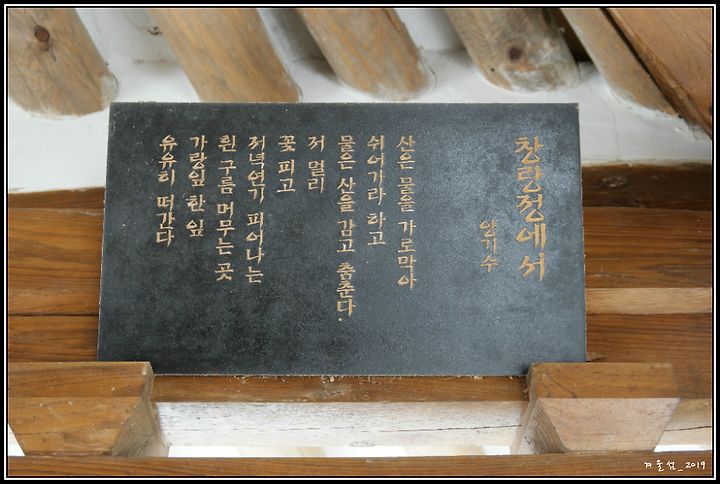 창랑정에서
양기수
산은 물을 가로막아
쉬어가라 하고
물은 산을 감고 춤춘다.
저 멀리
꽃 피고
저녁연기 피어나는
흰 구름 머무는 곳
가랑잎 한 잎
유유히 떠간다
겨울섬_2019